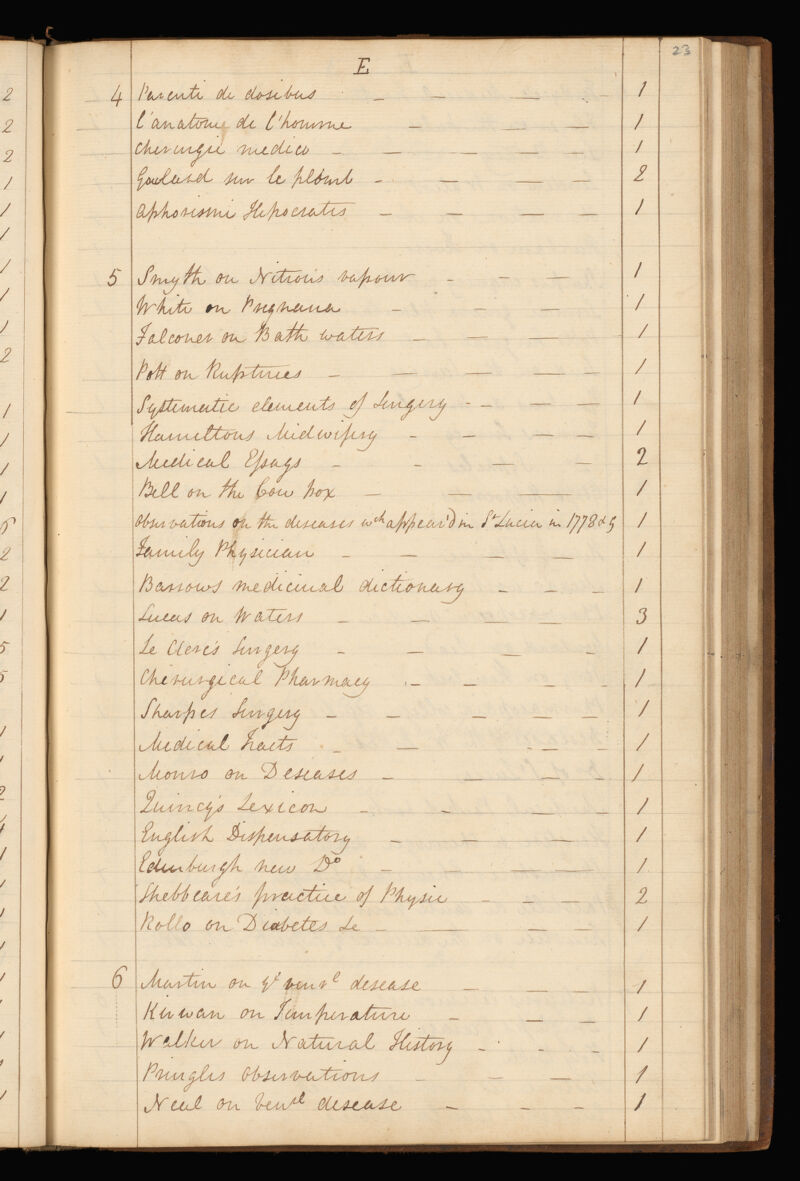 23
E
4 Parenti de dosibus — — — — 1
l'anatomie de l'homme — — — — 1
Cherurgie medico — — — — — 1
Goulard sur le plomb — — — — 2
Aphorismi Hipocratis — — — — 1
5 Smyth on Nitrous vapour — — — 1
White on Pregnancy — — — — 1
Falconer on Bath waters — — — — 1
Pott on Ruptures — — — — — 1
Systematic elements of Surgery — — — — 1
Hamiltons Midwifery — — — — 1
Medical Essays — — — — 2
Bell on the Cow pox — — — — 1
Observations on the diseases wch appear'd in St Lucia in 1778 & 9 1
Family Physician — — — — — 1
Barrows medicinal dictionary — — — 1
Lucas on Waters — — — — — 3
Le Clerc's Surgery — — — — 1
Cherurgical Pharmacy — — — — 1
Sharpes Surgery — — — — — 1
Medical Tracts — — — — 1
Monro on Deseases — — — — 1
Quincy's Lexicon — — — — 1
English Dispensatory — — — — 1
Edinburgh new Do — — — — 1
Shebbeare's practice of Physic — — — 2
Rollo on Diabetes &c — — — — 1
6 Martin on ye venrl desease — — — 1
Kirwan on Temperature — — — 1
Walker on Natural History — — — 1
Pringles observations — — — — 1
Neal on Venrl desease — — — 1
2
2
2
1
1
1
1
1
1
2
1
1
1
1
2
2
1
5
5
1
1
2
1
1
1
1
1
1
1
1
1